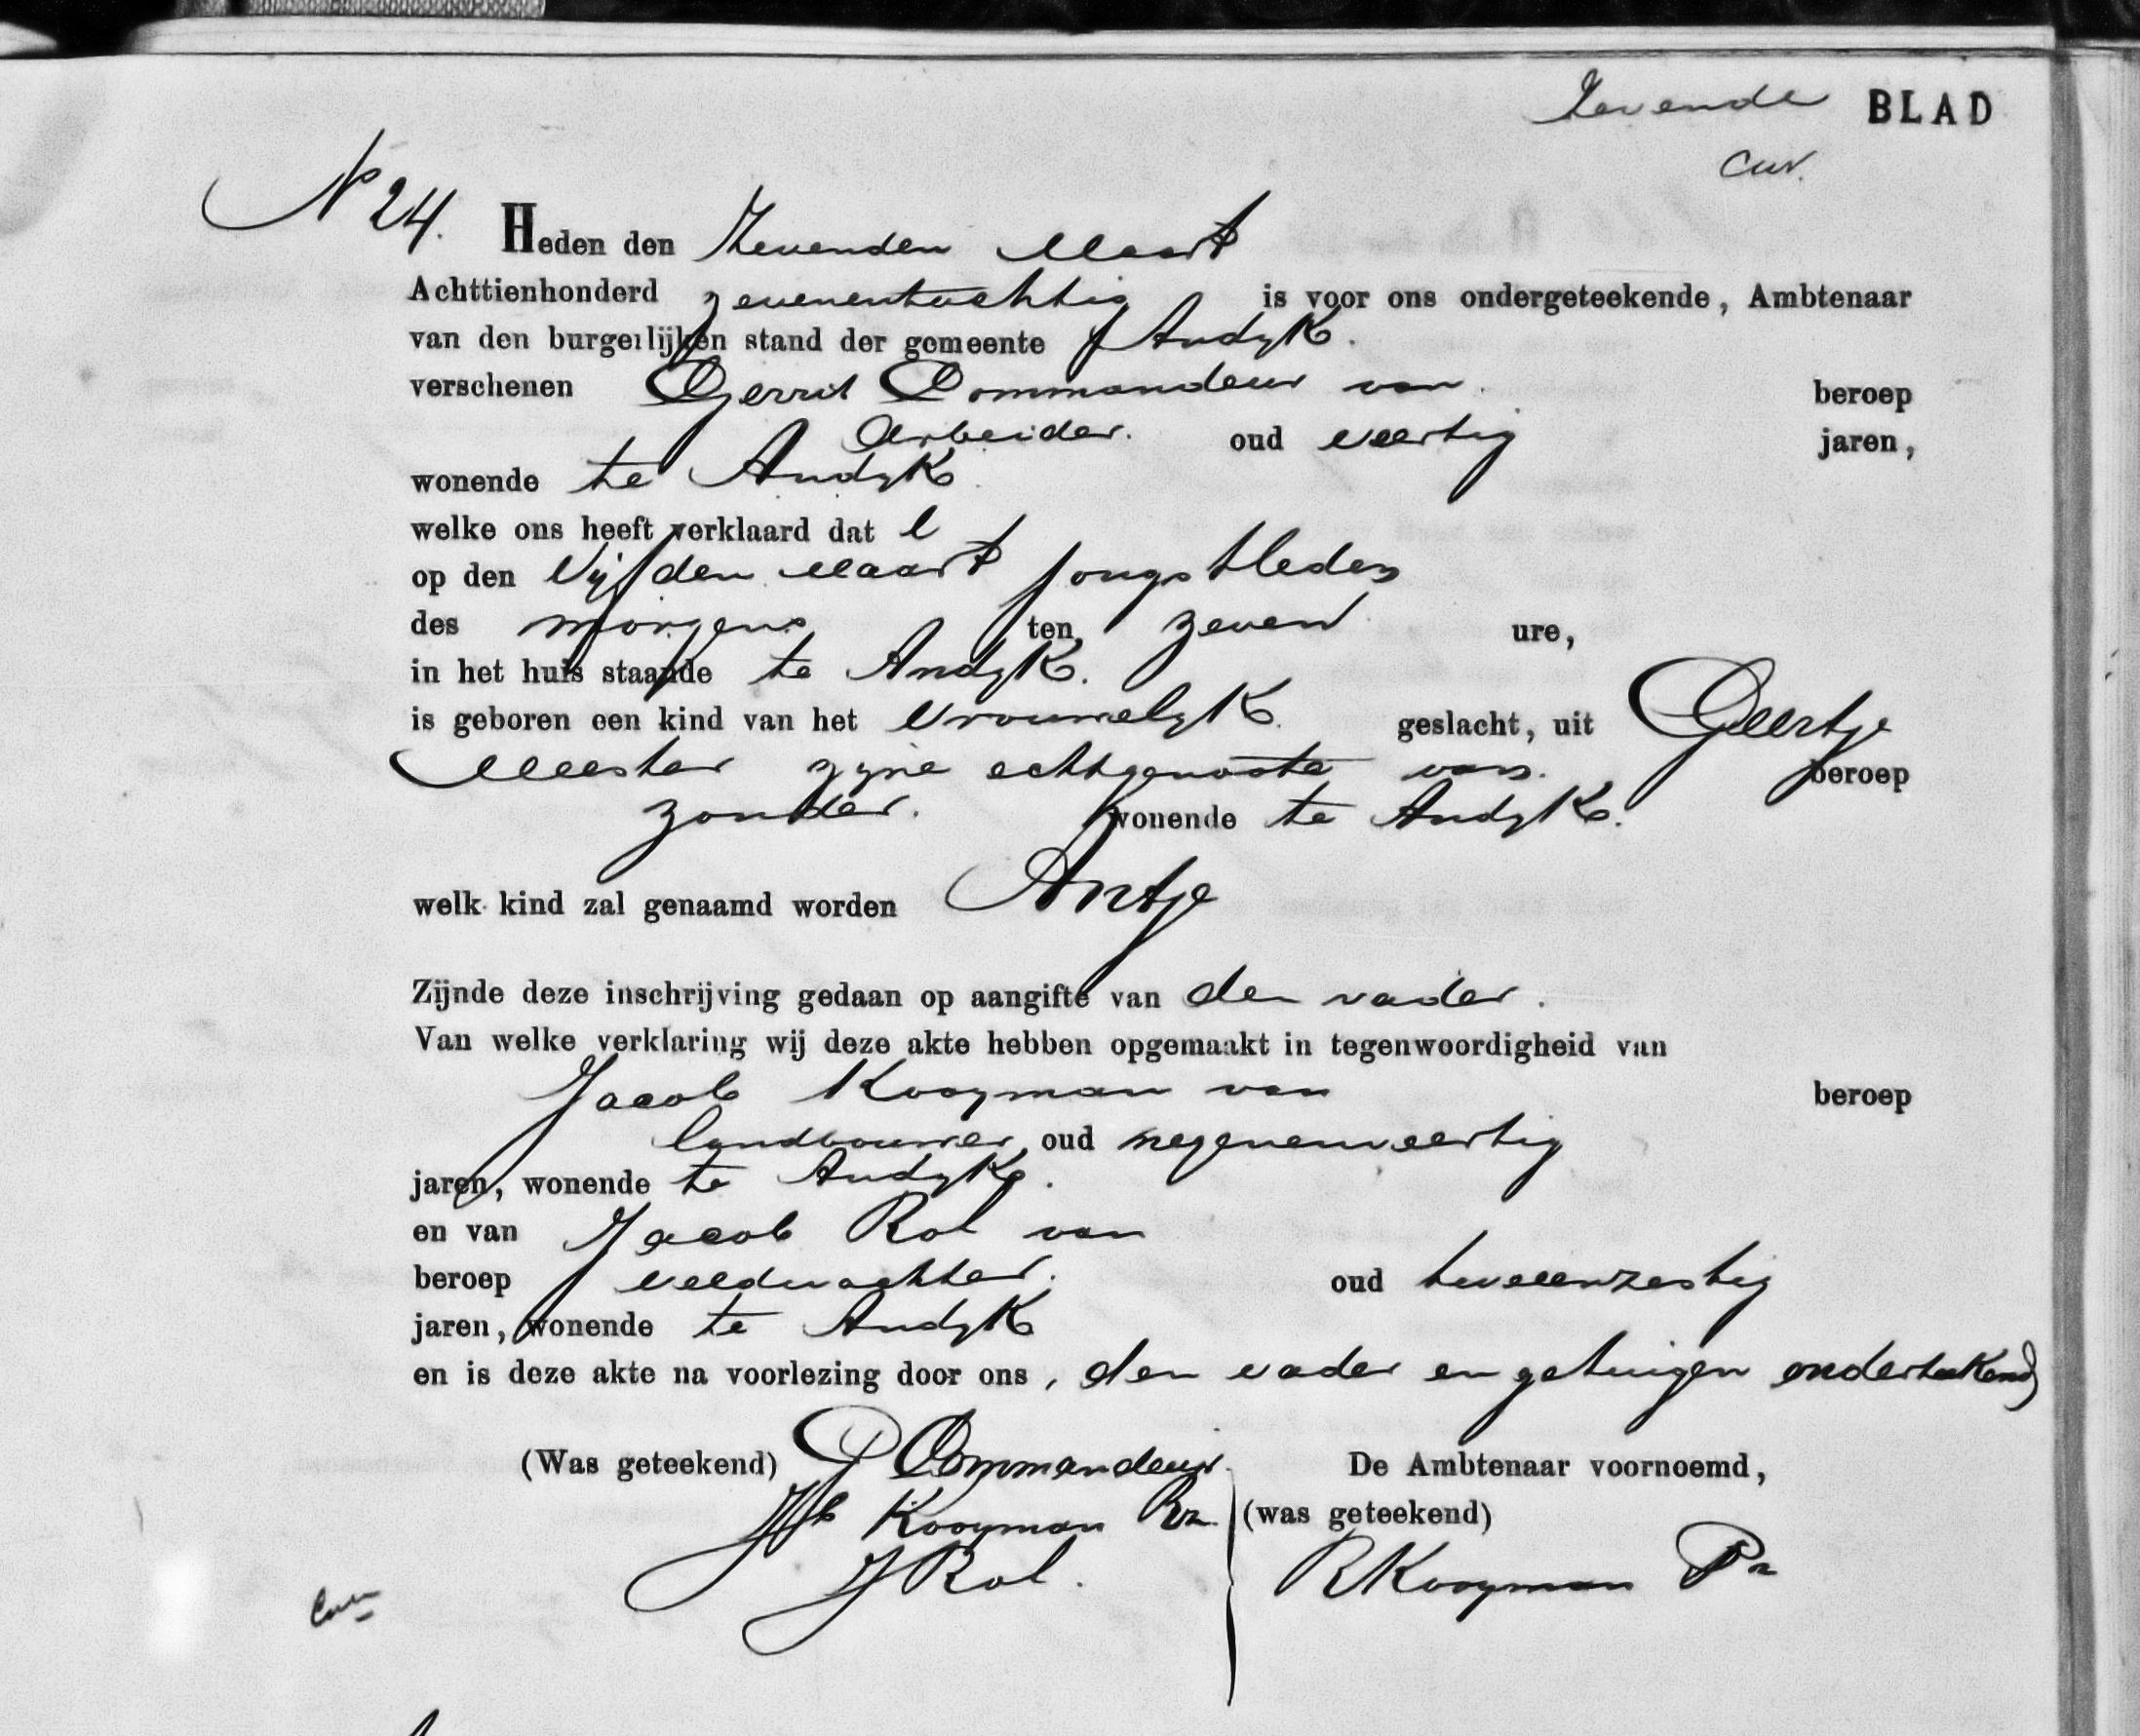 Zevende BLAD
N° 24. Heden den Zevenden Maart
Achttienhonderd zevenentachtig is voor ons ondergeteekende, Ambtenaar
van den burgerlijken stand der gemeente Andyk.
verschenen Gerrit Commandeur van beroep
Arbeider. oud veertig jaren,
wonende te Andyk
welke ons heeft verklaard dat
op den Vijfden Maart jongstleden
des morgens ten zeven ure,
in het huis staande te Andyk.
is geboren een kind van het vrouwelyk geslacht, uit Geertje
Meester zyne echtgenoote van beroep
zonder. wonende te Andyk.
welk kind zal genaamd worden Antje
Zijnde deze inschrijving gedaan op aangifte van den vader.
Van welke verklaring wij deze akte hebben opgemaakt in tegenwoordigheid van
Jacob Kooyman van beroep
landbouwer, oud negenenveertig
jaren, wonende te Andyk.
en van Jacob Rol van
beroep veldwachter. oud tweeenzestig
jaren, wonende te Andyk
en is deze akte na voorlezing door ons, den vader en getuigen onderteekend
(Was geteekend) G Commandeur. De Ambtenaar voornoemd,
Jb Kooyman Rz. (was geteekend)
J Rol. R Kooyman Pz